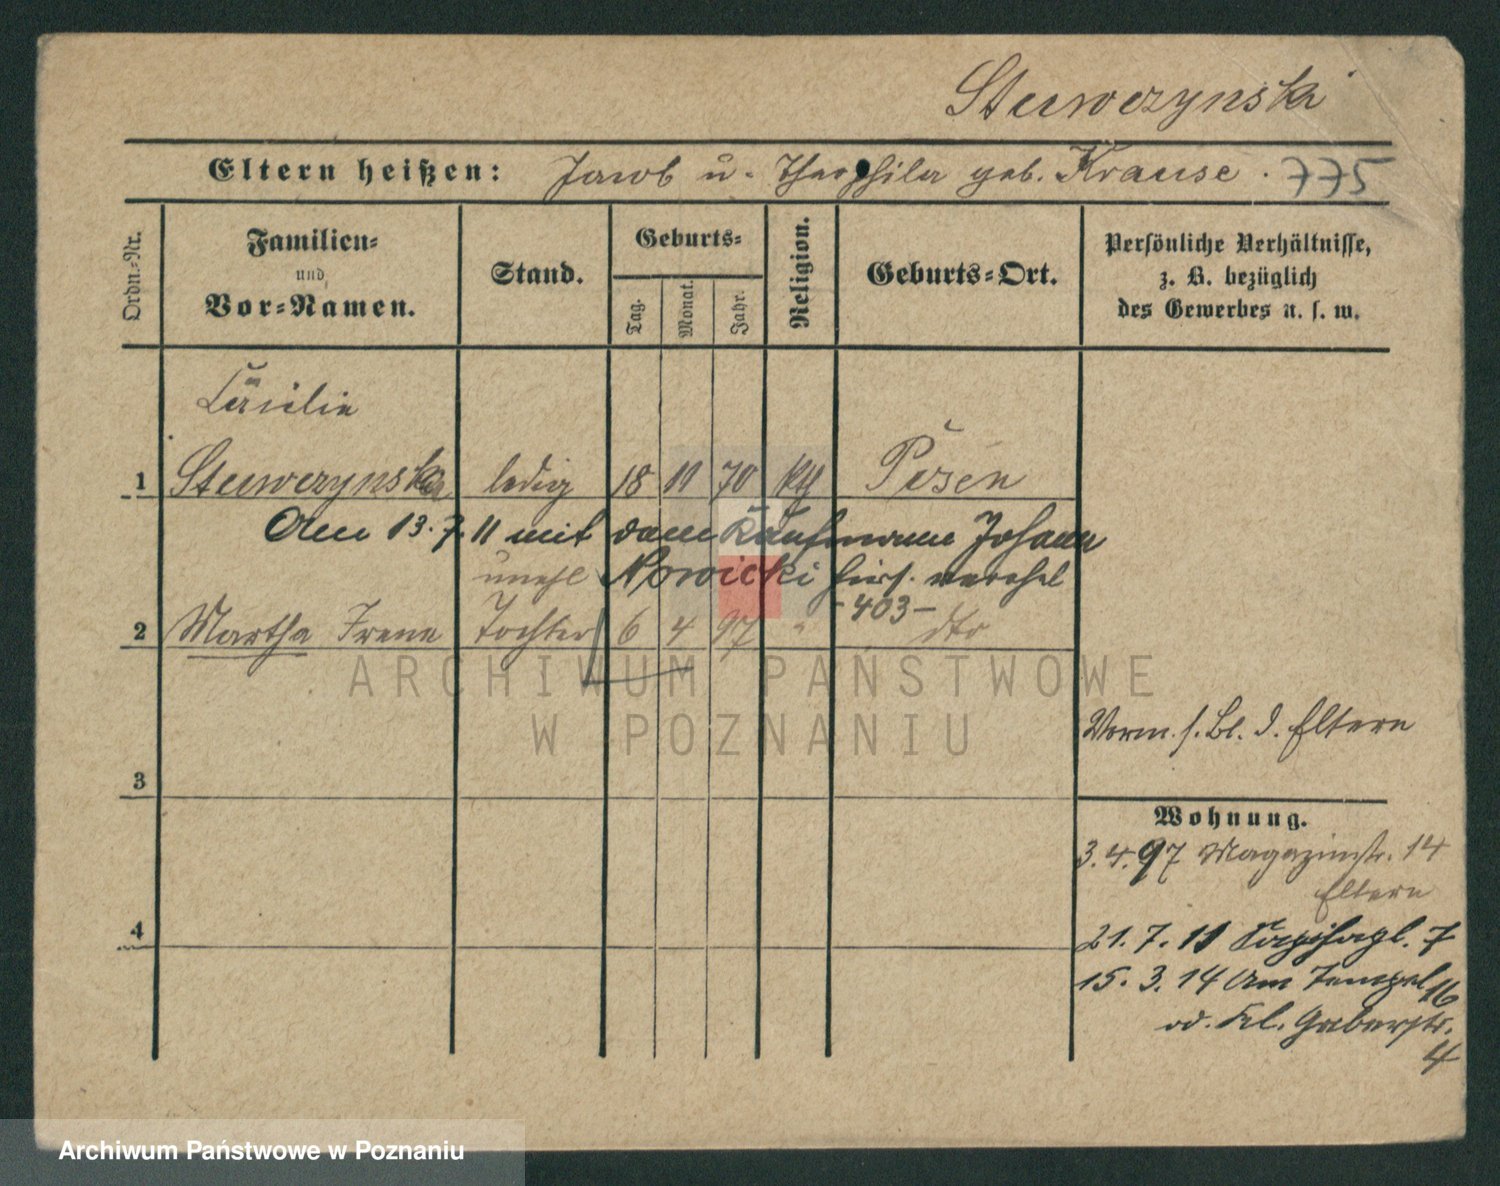 Stuwczynski
Eltern heißen: Jacob u. Theophila geb. Krause. 775
Ordn.-Nr.
Familien-
und
Vor-Namen.
Stand.
Geburts-
Tag.
Monat.
Jahr.
Religion.
Geburts-Ort.
Persönliche Verhältnisse,
z. B. bezüglich
des Gewerbes u. s. w.
Cäcilie
1 Stuwczynska ledig 18 11 70 kth Posen
Am 13.7.11 mit dem Kaufmann Johann
unehl Nowicki hier. verehel
-403-
2 Martha Irene Tochter 6 4 97 " dto
Verm. s. Bl. d. Eltern
3
Wohnung.
3.4.97 Magazinstr. 14
Eltern
4
21.7.11 Sapiehapl. 7
15.3.14 Am Tempel 16
od. Kl. Gerberstr.
4
ARCHIWUM PAŃSTWOWE
W POZNANIU
Archiwum Państwowe w Poznaniu